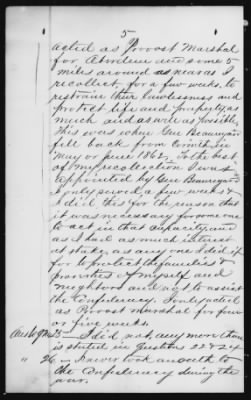 5
acted as Provost Marshal
for Aberdeen and some 5
miles around as near as I
recollect, for a few weeks, to
restrain their lawlessness and
protect life and property as
much and as well as possible.
This was when Gen Beauregard
fell back from Corinth in
May or June 1862, To the best
of my recollection I was
appointed by Gen Beauregard
I only served a few weeks &
I did this for the reason that
it was necessary for some one
to act in that capacity, and
as I had as much interest
at stake as any one I did it
for to protect the families &
properties of myself and
neighbors and not to assist
the Confederacy. I only acted
as Provost marshal for four
or five weeks.
Ans to 25 — I did not, any more than
is stated in Questions 22 & 24
" 26 — I never took an oath to
the Confederacy during the
war.